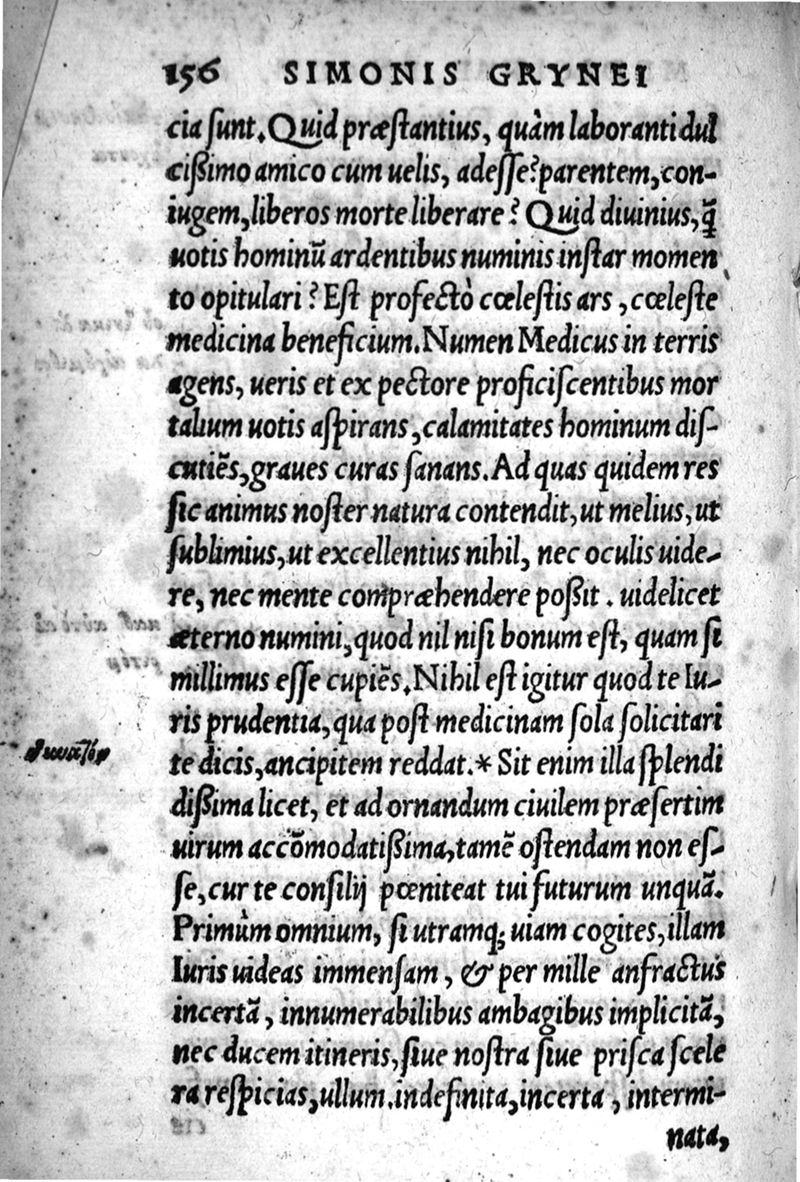 156 SIMONIS GRYNEI
cia ſunt. Quid præſtantius, quàm laboranti dul
cißimo amico cum uelis, adeſſe? parentem, con-
iugem, liberos morte liberare? Quid diuinius, q̃
uotis hominũ ardentibus numinis inſtar momen
to opitulari? Eſt profectò cœleſtis ars, cœleſte
medicina beneficium. Numen Medicus in terris
agens, ueris et ex pectore proficiſcentibus mor
talium uotis aſpirans, calamitates hominum diſ-
cutiẽs, graues curas ſanans. Ad quas quidem res
ſic animus noſter natura contendit, ut melius, ut
ſublimius, ut excellentius nihil, nec oculis uide-
re, nec mente compræhendere poßit. uidelicet
æterno numini, quod nil niſi bonum eſt, quam ſi
millimus eſſe cupiẽs. Nihil eſt igitur quod te Iu-
ris prudentia, qua poſt medicinam ſola ſolicitari
te dicis, ancipitem reddat.* Sit enim illa ſplendi
dißima licet, et ad ornandum ciuilem præſertim
uirum accõmodatißima, tamẽ oſtendam non eſ-
ſe, cur te conſilij pœniteat tui futurum unquã.
Primùm omnium, ſi utramq; uiam cogites, illam
Iuris uideas immenſam, & per mille anfractus
incertã, innumerabilibus ambagibus implicitã,
nec ducem itineris, ſiue noſtra ſiue priſca ſcele
ra reſpicias, ullum. indefinita, incerta, intermi-
nata,